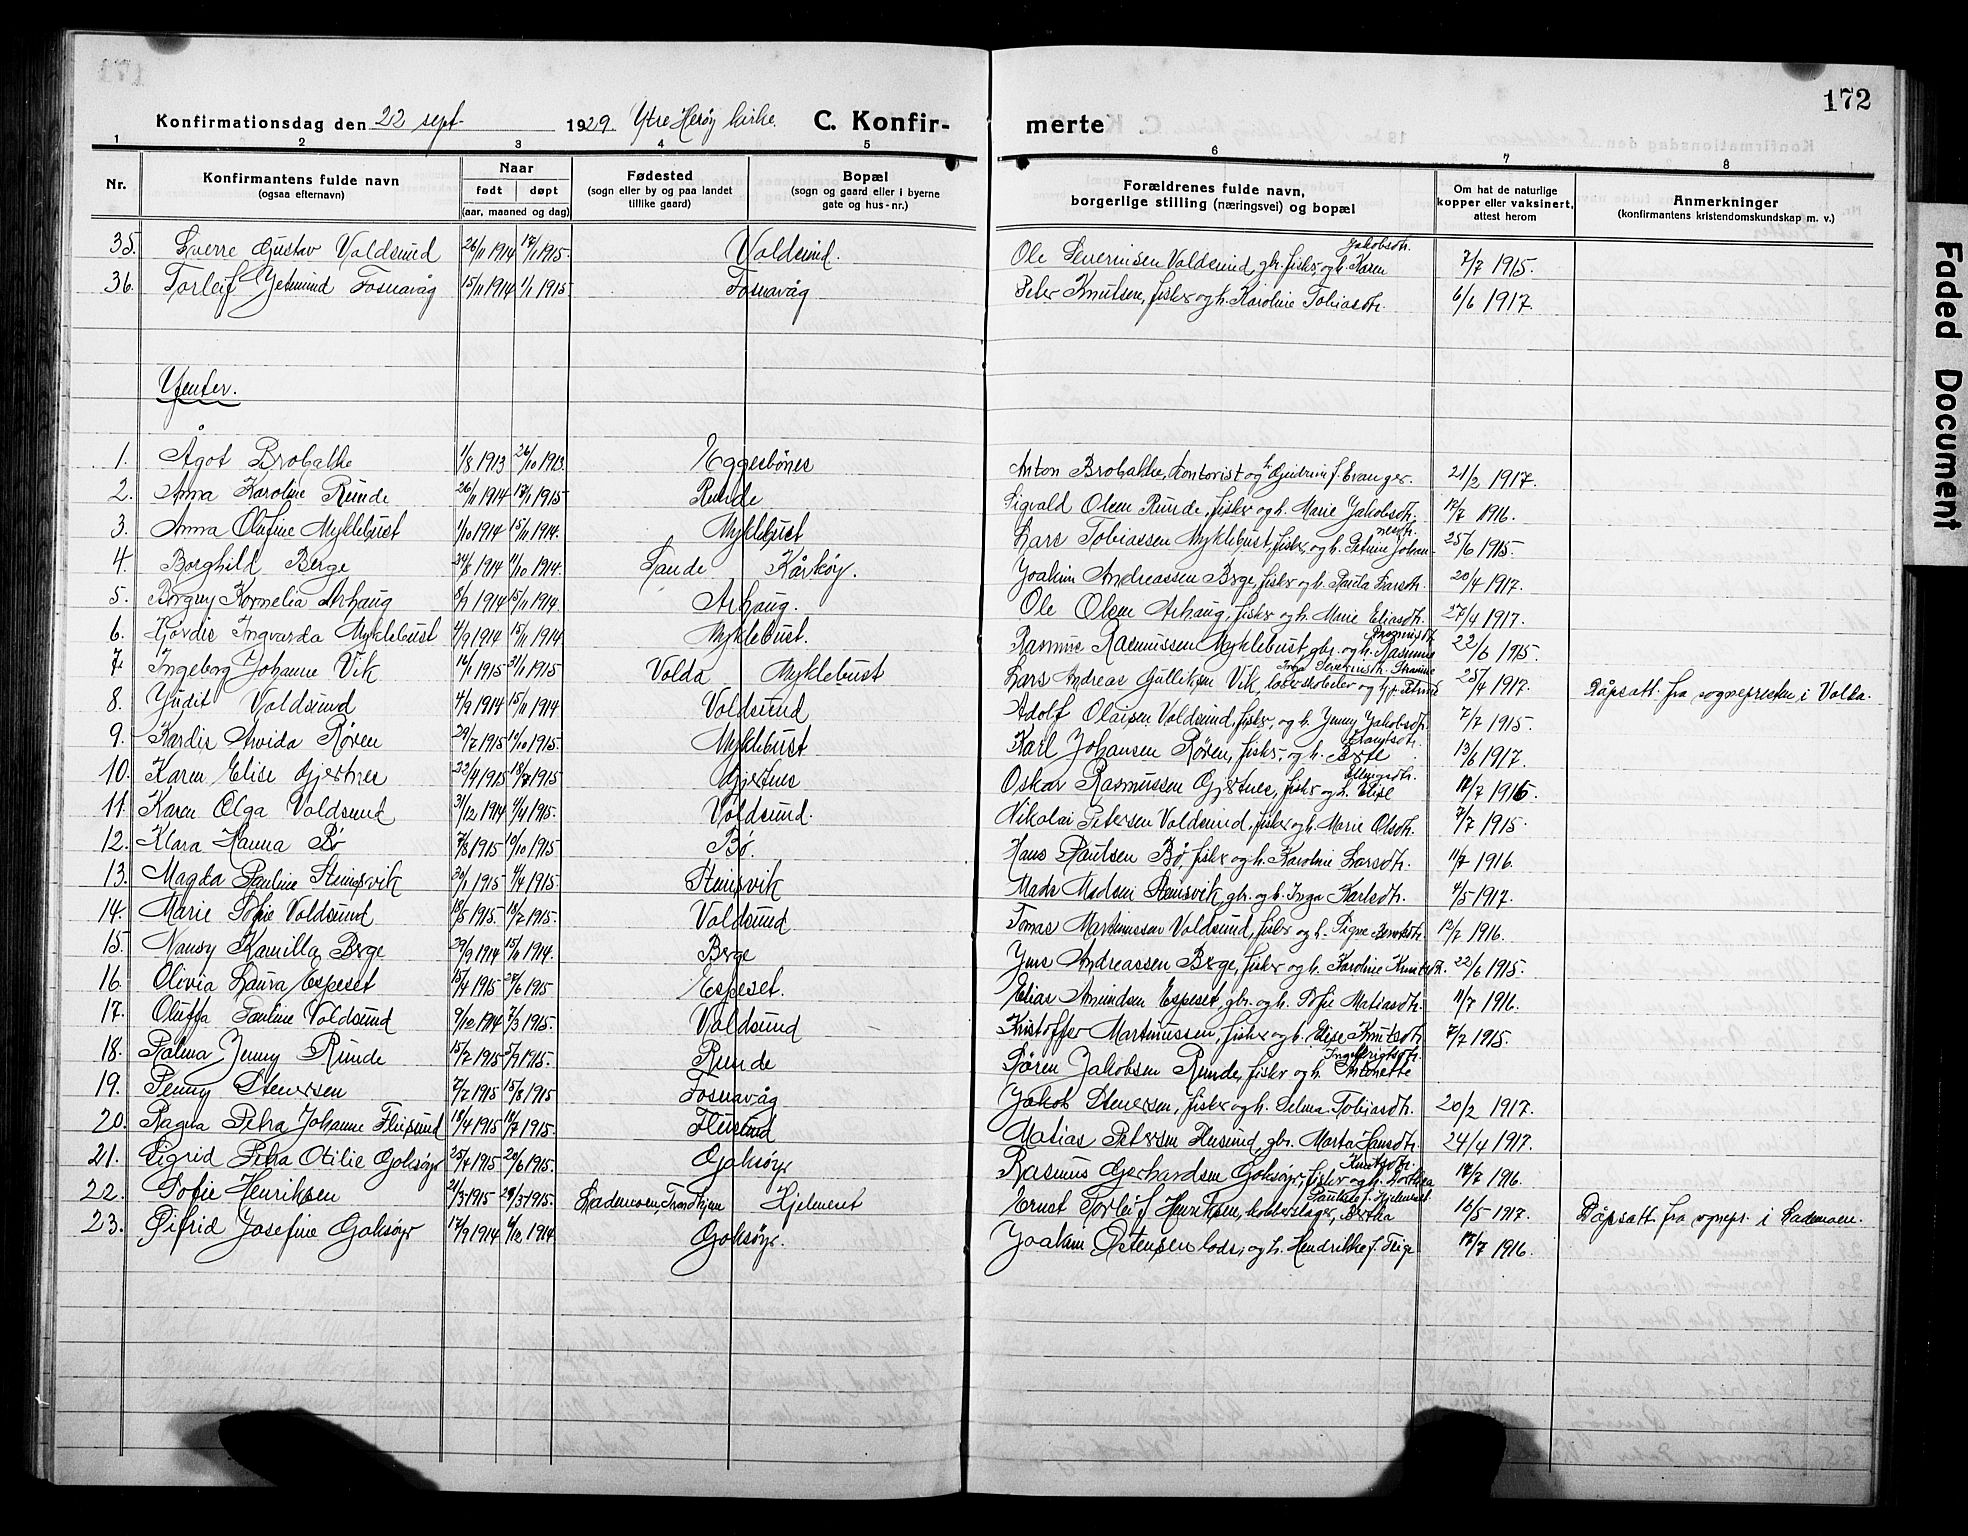 172
Konfirmationsdag den 22 sept. 1929. Ytre Herøy kirke. C. Konfir- merte
1 2 3 4 5 6 7 8
Nr. Konfirmantens fulde navn (ogsaa efternavn) Naar født døpt (aar, maaned og dag) Fødested (sogn eller by og paa landet tillike gaard) Bopæl (sogn og gaard eller i byerne gate og hus-nr.) Forældrenes fulde navn, borgerlige stilling (næringsvei) og bopæl Om hat de naturlige kopper eller vaksinert, attest herom Anmerkninger (konfirmantens kristendomskundskap m. v.)
35. Sverre Gustav Voldsund 26/11 1914 17/1 1915. Voldsund. Ole Severinsen Voldsund, gbr. fisker, og h. Karen Jakobsdtr. 7/7 1915.
36. Torleif Jetmund Fosnavåg 15/11 1914 1/1 1915. Fosnavåg Peter Knutsen, fisker og h. Karoline Tobiasdtr. 6/6 1917.
Jenter.
1. Ågot Brobakke 1/8 1913 26/10 1913. Eggesbönes Anton Brobakke, kontorist og h. Gjudrun f. Evanger. 21/2 1917.
2. Anna Karoline Runde 26/11 1914 17/1 1915 Runde Sigvald Olsen Runde, fisker og h. Marie Jakobsdtr. 12/7 1916.
3. Anna Olufine Myklebust 1/10 1914 15/11 1914. Myklebust Lars Tobiassen Myklebust, fisker, og h. Petrine Johannesdtr. 25/6 1915.
4. Borghild Berge 24/8 1914 11/10 1914. Sande Kårköy. Joakim Andreassen Berge, fisker og h. Paula Larsdtr. 20/4 1917.
5. Borgny Kornelia Arhaug 8/9 1914 15/11 1914. Arhaug. Ole Olsen Arhaug, fisker og h. Marie Eliasdtr. 27/4 1917.
6. Hjördis Ingvarda Myklebust 4/9 1914 15/11 1914. Myklebust. Rasmus Rasmussen Myklebust, gbr. og h. Rasmine 22/6 1915.
7. Ingeborg Johanne Vik 16/1 1915 31/1 1915 Volda Myklebust Lars Andreas Gulliksen Vik, 25/4 1917. Dåpsatt. fra sognepresten i Volda.
8. Judit Voldsund 4/9 1914 15/11 1914 Voldsund Adolf Olaisen Voldsund, fisker, og h. Jenny Jakobsdtr. 7/7 1915.
9. Kardis Arvida Røren 29/7 1915 10/10 1915. Myklebust. Karl Johansen Røren, fisker, og h. Berte 13/6 1917.
10. Karen Elise Gjertnes 22/4 1915 18/7 1915 Gjertnes Oskar Rasmussen Gjertnes, fisker og h. Elise Ellingsdtr. 12/7 1916.
11. Karen Olga Voldsund 31/12 1914 4/4 1915. Voldsund. Nikolai Petersen Voldsund, fisker og h. Marie Olsdtr. 7/7 1915.
12. Klara Hanna Bø 7/8 1915 10/10 1915 Bø. Hans Paulsen Bø, fisker og h. Karoline Larsdtr. 11/7 1916.
13. Magda Pauline Stensvik 20/1 1915 4/4 1915. Stensvik Mads Madsen Stensvik, gbr. og h. Inga Karlsdtr. 9/5 1917.
14. Marie Sofie Voldsund 18/5 1915. 18/7 1915. Voldsund Tomas Martinussen Voldsund, fisker og h. Signe 12/7 1916.
15. Nansy Kamilla Berge 29/9 1914 15/11 1914. Berge Jens Andreassen Berge, fisker og h. Karoline Knutsdtr. 22/6 1915.
16. Olivia Laura Espeset 15/4 1915 27/6 1915 Espeset. Elias Amundsen Espeset, gbr. og h. Sofie Matiasdtr. 11/7 1916.
17. Oluffa Pauline Voldsund 9/12 1914 7/3 1915. Voldsund Kristoffer Martinussen, fisker og h. Elise Knutsdtr. 7/7 1915.
18. Palma Jenny Runde 15/7 1915 5/9 1915. Runde Søren Jakobsen Runde, fisker og h. Antonette Ingebrigtsdtr.
19. Penny Stenersen 7/7 1915 15/8 1915 Fosnavåg Jakob Stenersen, fisker og h. Selma Tobiasdtr. 20/2 1917.
20. Ragna Petra Johanne Flusund 18/4 1915 18/7 1915. Flusund Matias Petersen Flusund, gbr. Marta Hansdtr. 24/4 1917.
21. Sigrid Petra Otilie Goksøyr 25/4 1915 20/6 1915. Goksøyr Rasmus Gerhardsen Goksøyr, fisker og h. Dorthea Knutsdtr. 12/7 1916.
22. Sofie Henriksen 2/3 1915 29/3 1915. Lademoen, Trondhjem Hjelmeset Ernst Torleif Henriksen, kobberslager, Bertha f. Hjelmeset 16/5 1917. Dåpsatt. fra sognepr. i Lademoen.
23. Øifrid Josefine Goksøyr 17/9 1914 6/12 1914 Goksøyr. Joakim Ostensen lods, og h. Hendrikke f. Teige 17/7 1916.
Faded Document